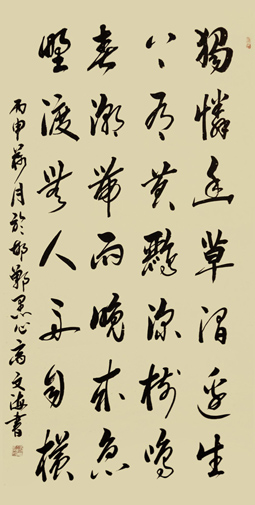 獨憐幽草澗邊生
上有黄鸝深樹鳴
春潮帶雨晚來急
野渡無人舟自横
丙申月於邯鄲墨心高文海書